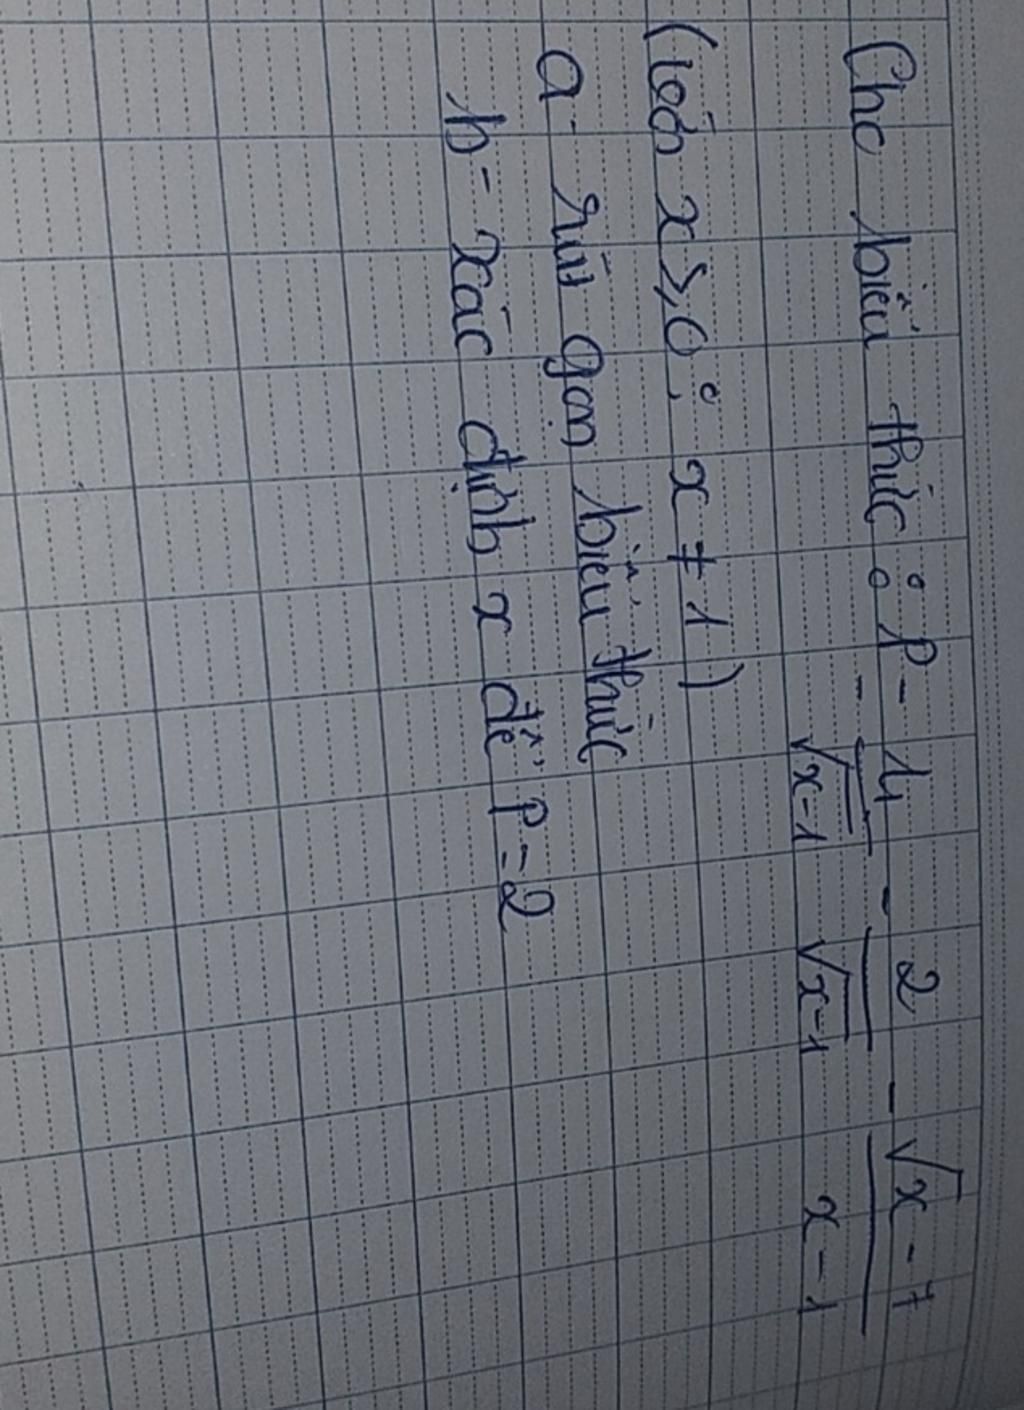 Cho biểu thức : P = \frac{4}{\sqrt{x-1}} - \frac{2}{\sqrt{x-1}} - \frac{\sqrt{x}-7}{x-1}
(với x ≥ 0 ; x ≠ 1)
a. rút gọn biểu thức
b- xác định x để P = 2